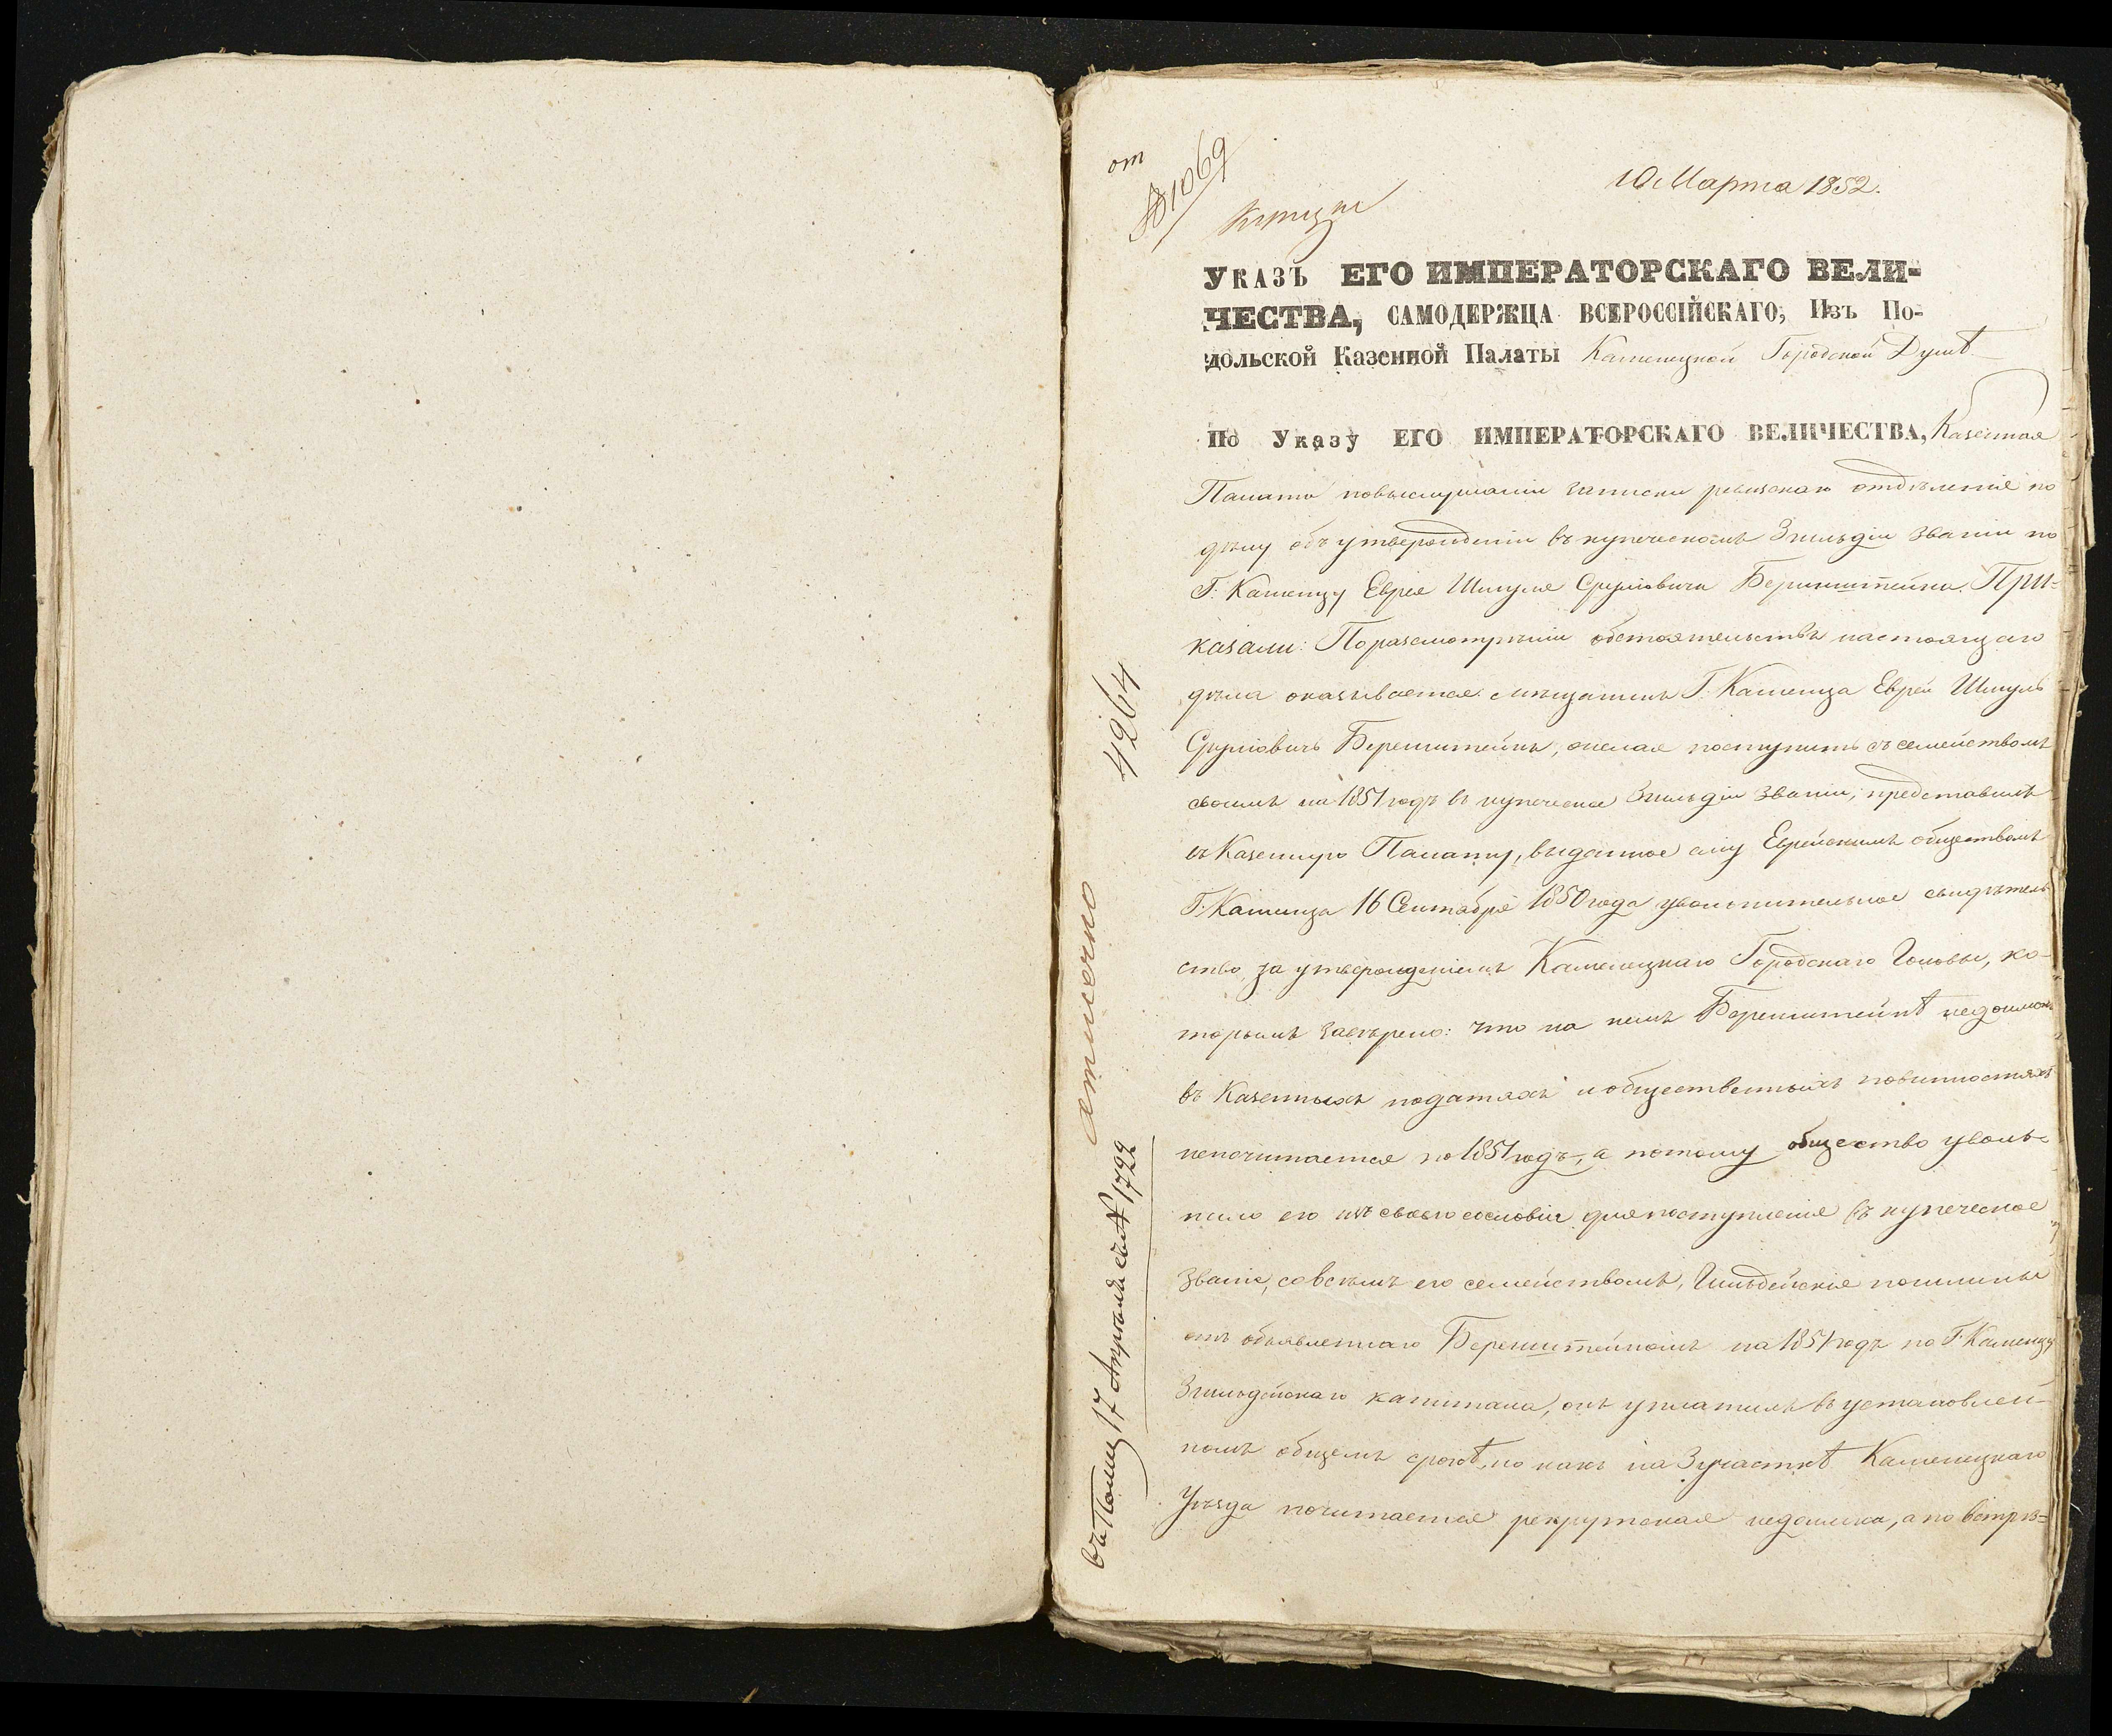 от
№ 1069
10 Марта 1852.
УКАЗЪ ЕГО ИМПЕРАТОРСКАГО ВЕЛИ-
ЧЕСТВА, САМОДЕРЖЦА ВСЕРОССІЙСКАГО, Изъ По-
дольской Казенной Палаты Каменецкой Городской Думѣ
По Указу ЕГО ИМПЕРАТОРСКАГО ВЕЛИЧЕСТВА, Казенная
Палата повыслушаніи записки ревизскаго отдѣленія по
дѣлу объ утвержденіи въ купеческомъ 3 гильдіи званіи по
Г: Каменцу Еврея Шмуля Сруліовича Беренштейна. При-
казали: Поразсмотрѣніи обстоятельствъ настоящаго
дѣла оказывается: мѣщанинъ Г: Каменца Еврей Шмуль
Сруліовичъ Беренштейнъ, желая поступить съ семействомъ
своимъ на 1851 годъ въ купеческое 3 гильдіи званіи, представилъ
въ Казенную Палату, выданное ему Еврейскимъ обществомъ
Г. Каменца 16 Сентября 1850 года увольнительное свидѣтель-
ство, за утвержденіемъ Каменецкаго Городскаго Головы, ко-
торымъ завѣрено: что на немъ Беренштейнѣ недоимокъ
въ Казенныхъ податяхъ и общественныхъ повинностяхъ
непочитается по 1851 годъ, а потому общество уволь-
нило его изъ своего сословія для поступленія въ купеческое
званіе, совсѣмъ его семействомъ, Гильдейскіе пошлины
отъ объявленнаго Беренштейномъ на 1851 годъ по Г. Каменцу
3 гильдейскаго капитала, онъ уплатилъ въ установлен-
номъ общемъ срокѣ, но какъ на 3 участкѣ Каменецкаго
Уѣзда почитается рекрутская недоимка, а по встрѣ-
4264
отмечено
въ Полиц 17 Апрѣля съ № 1722